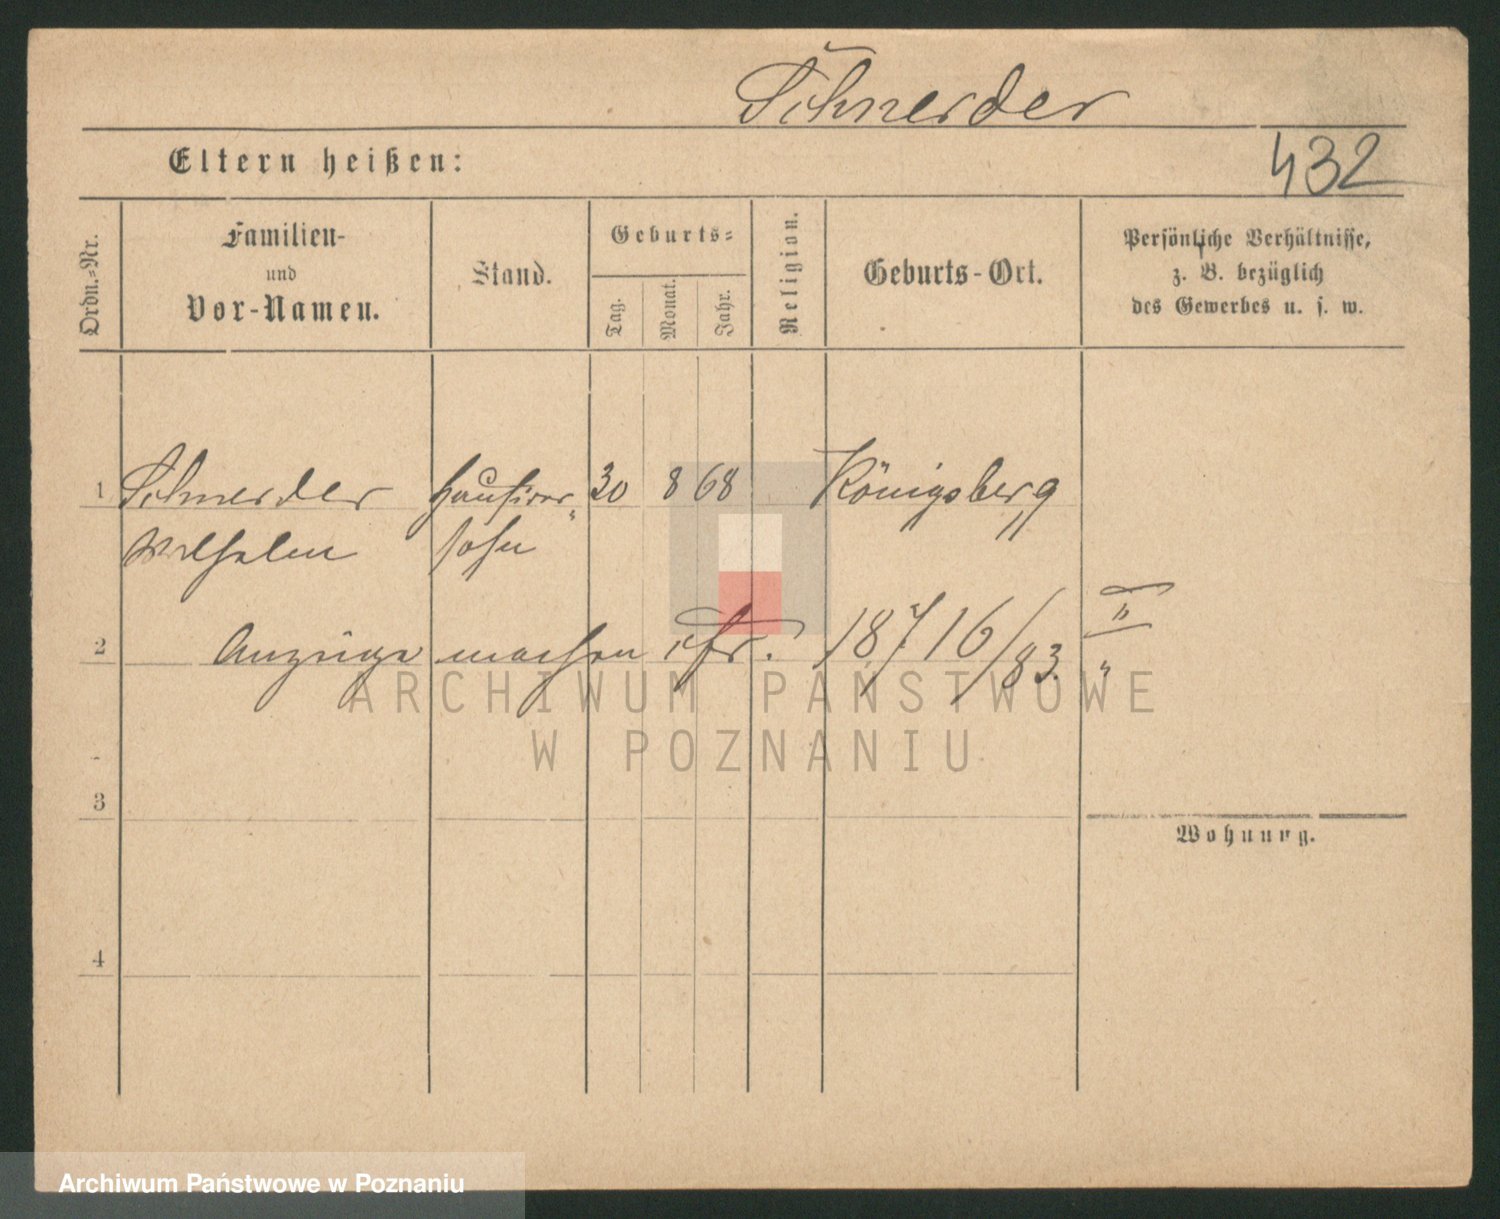 Schneider
Eltern heißen:
432
Ordn.-Nr.
Familien-
und
Vor-Namen.
Stand.
Geburts-
Tag.
Monat.
Jahr.
Religion.
Geburts-Ort.
Persönliche Verhältnisse,
z. B. bezüglich
des Gewerbes u. s. w.
1 Schneider Hausirer- 30 8 68 Königsberg
Wilhelm sohn
2 Anzeige machen 18 16/83.
ARCHIWUM PAŃSTWOWE
W POZNANIU
3
Wohnung.
4
Archiwum Państwowe w Poznaniu